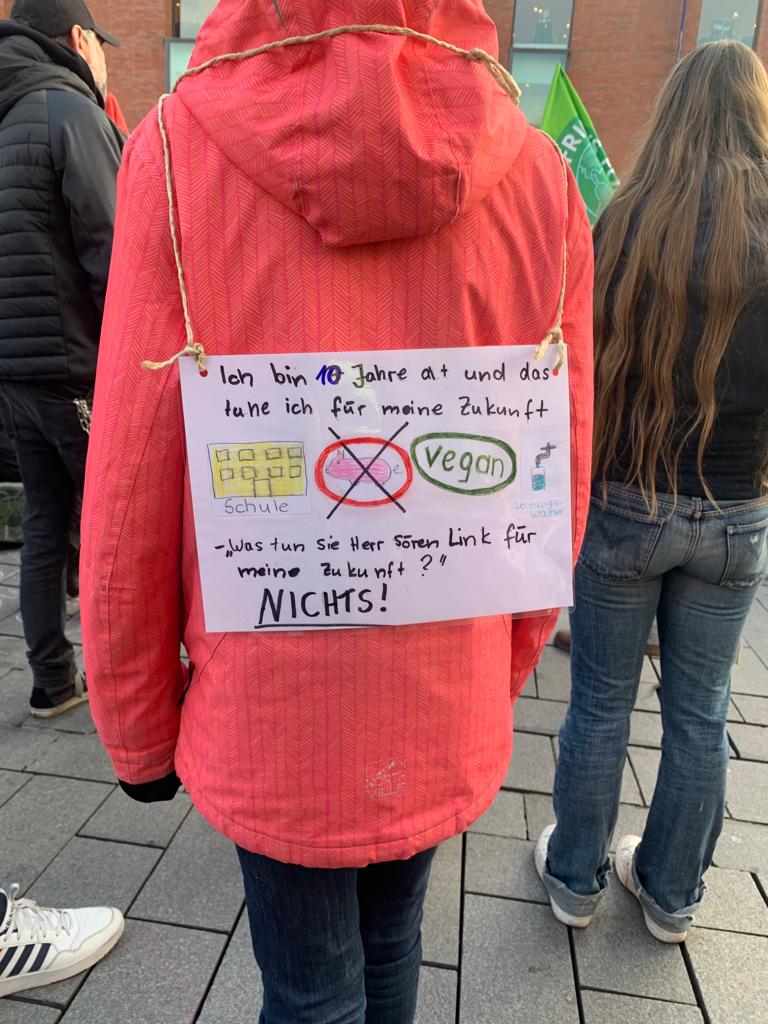 FRI
Ich bin 10 Jahre alt und das
tuhe ich für meine Zukunft
Schule
vegan
Leitungs-
wasser
-„Was tun Sie Herr Sören Link für
meine Zukunft?"
NICHTS!
NORTH
VILLE